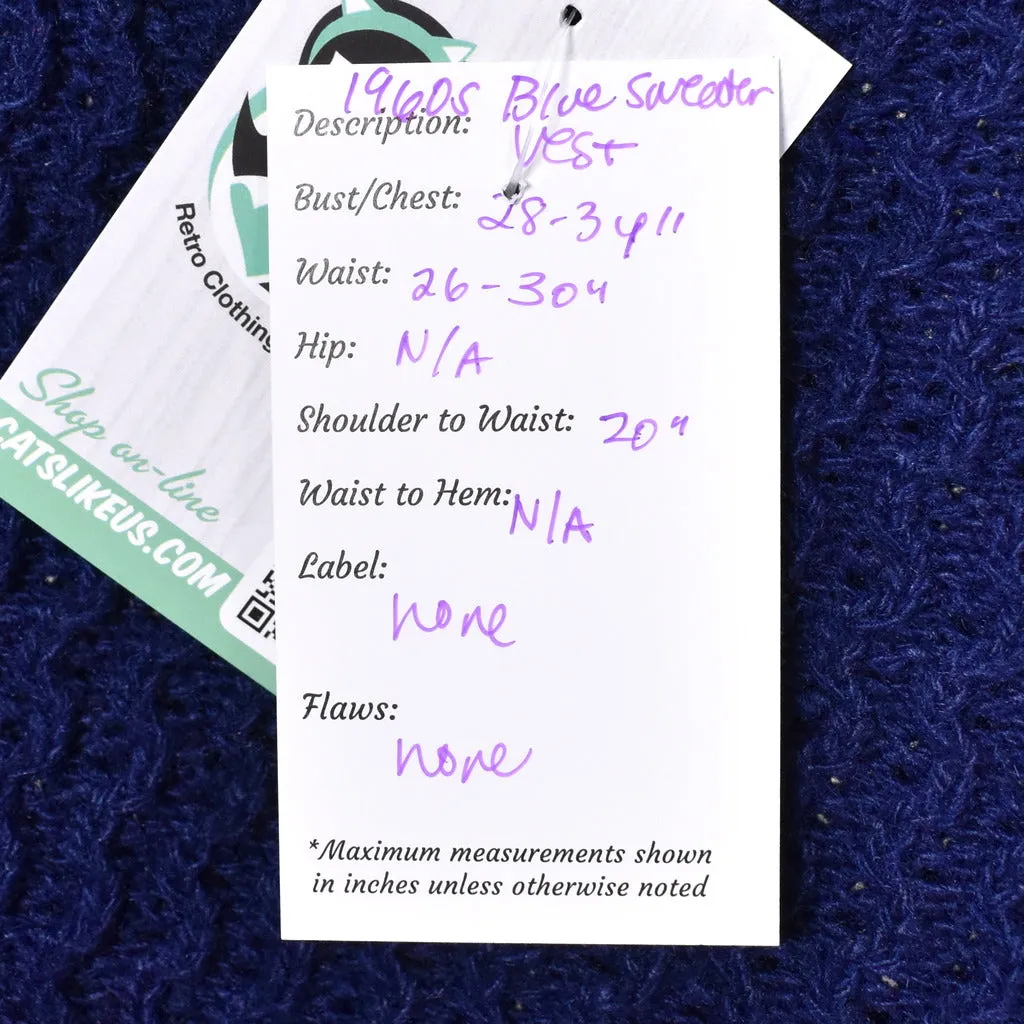 1960s Blue Sweater
Description: Vest
Bust/Chest: 28-34"
Waist: 26-30"
Hip: N/A
Shoulder to Waist: 20"
Waist to Hem: N/A
Label:
none
Flaws:
none
*Maximum measurements shown
in inches unless otherwise noted
Retro Clothing
Shop on-line
CATSLIKEUS.COM